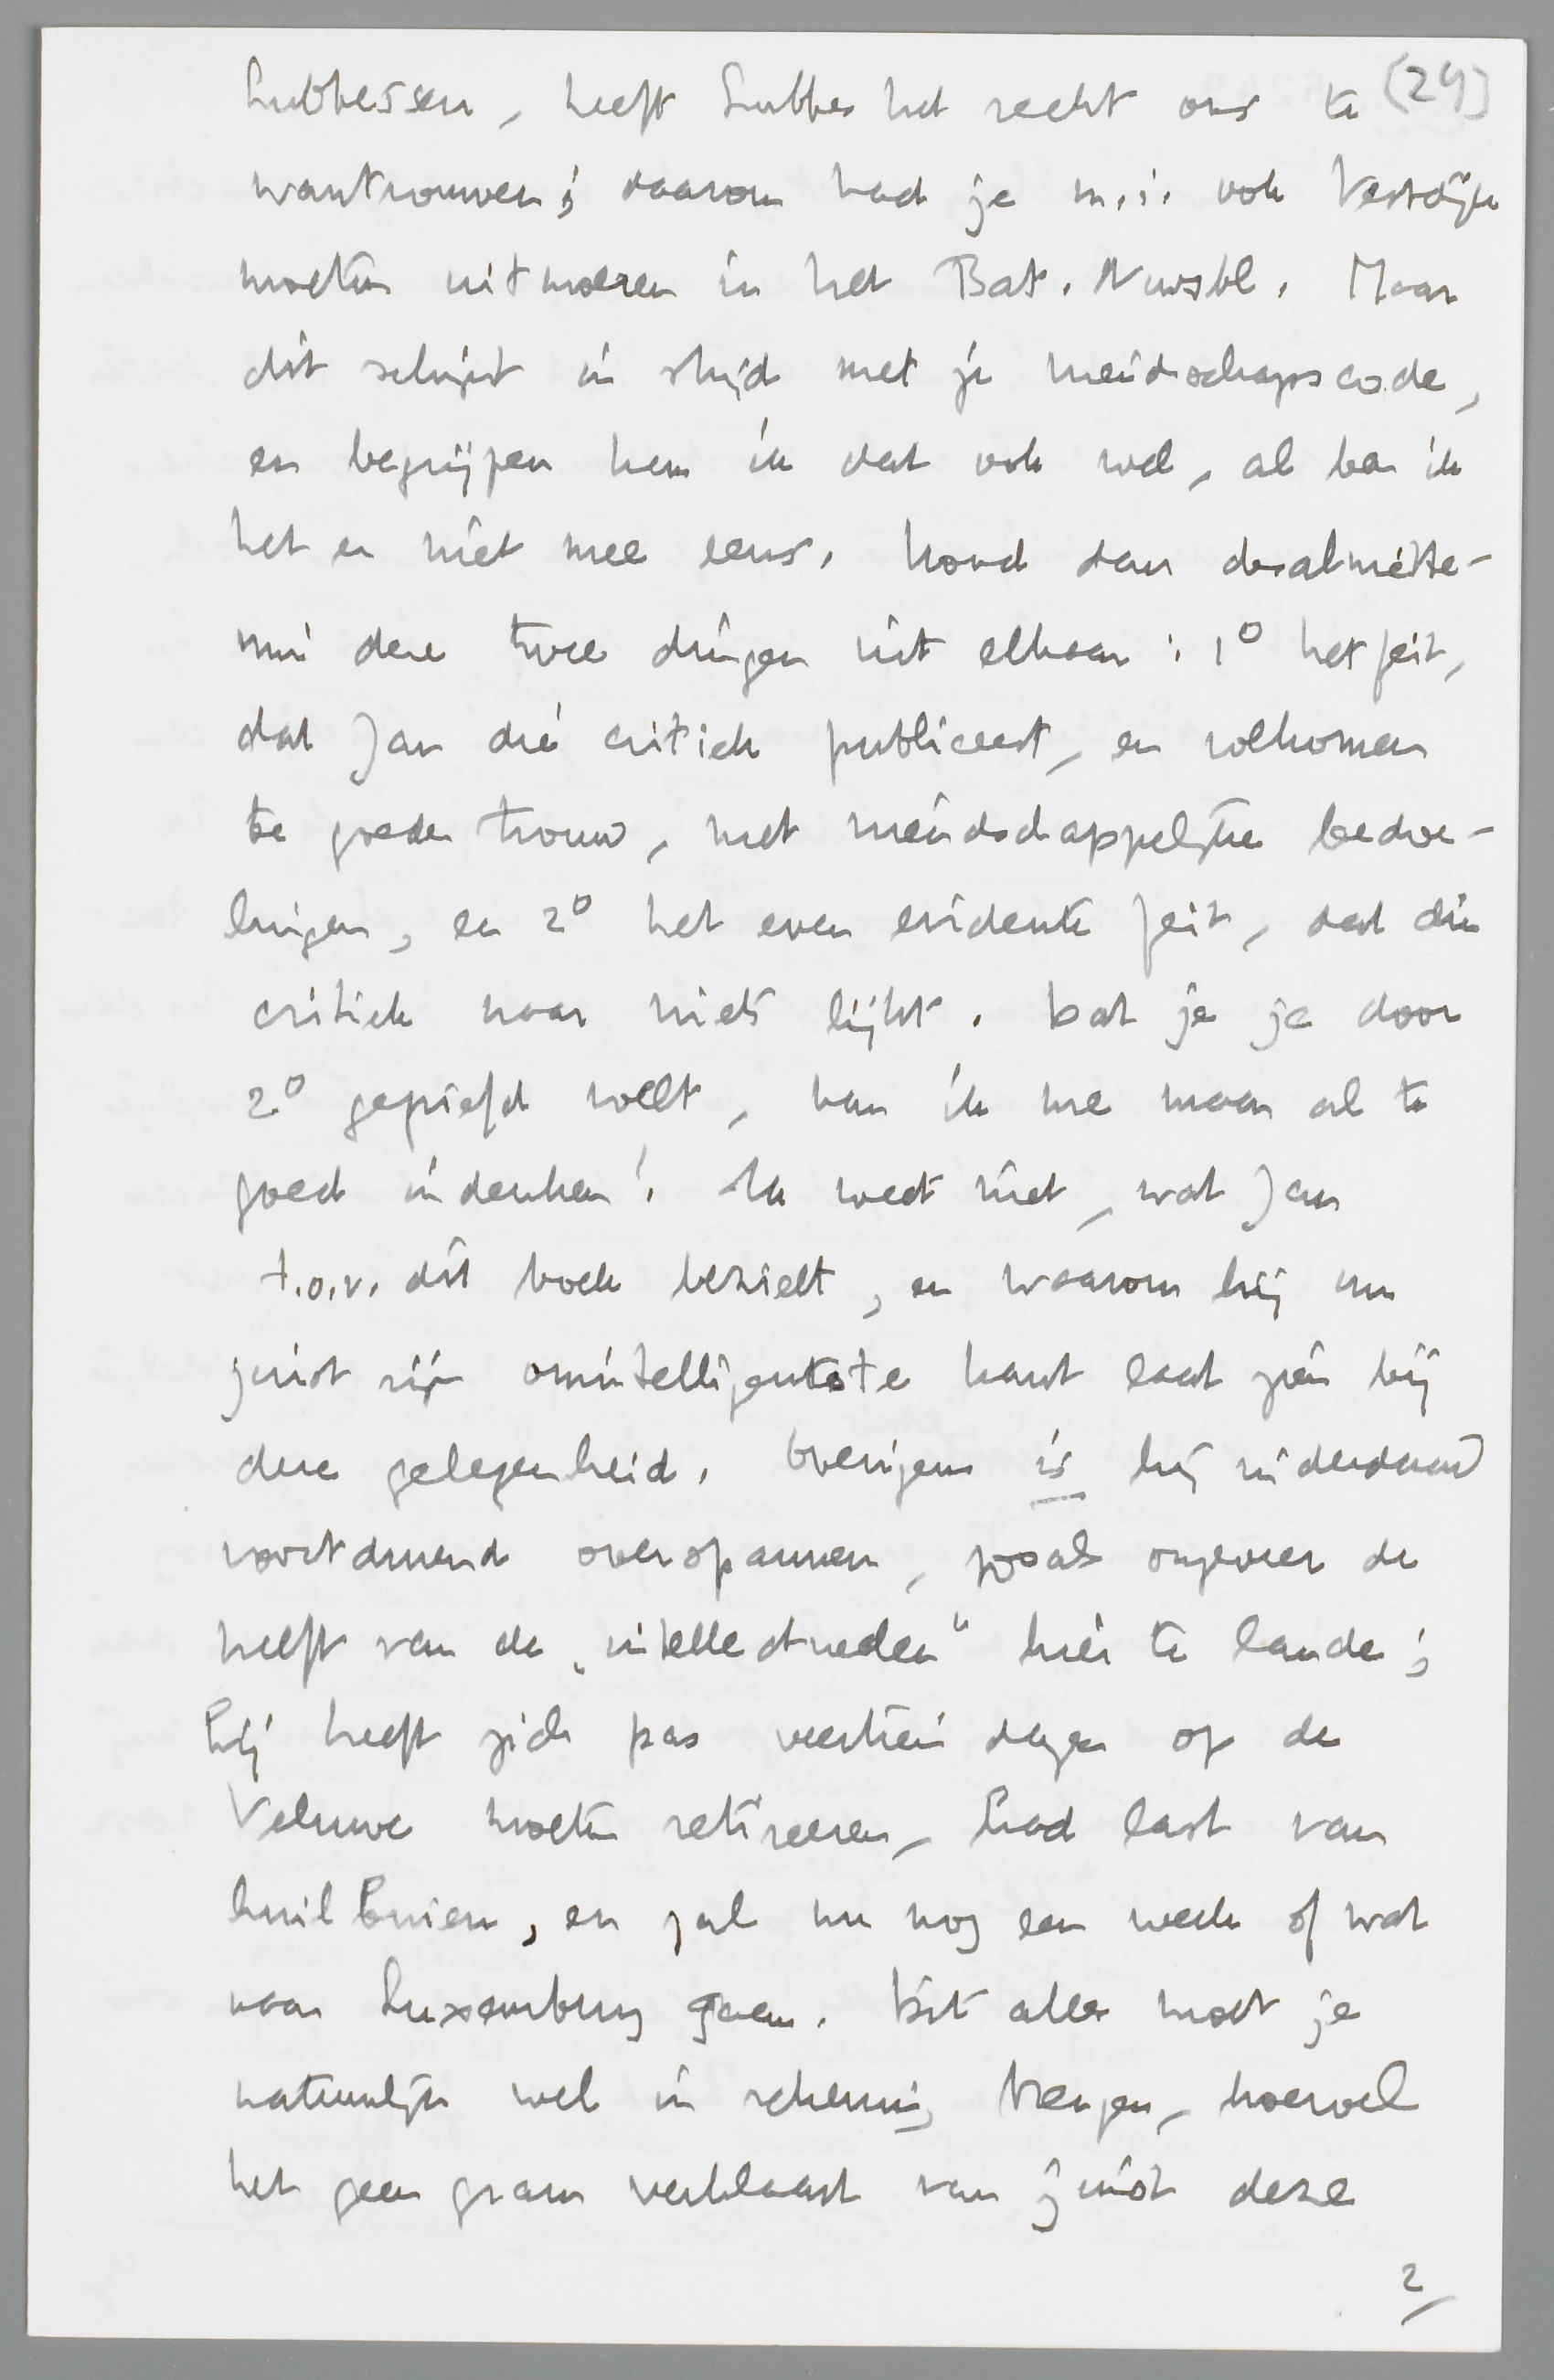 (29)
Lubbessen, heeft Lubbes het recht ons te
wantrouwen; daarom had je m.i. ook Vestdijk
moeten uitmoeren in het Bat. Nwsbl. Maar
dit schijnt in strijd met je vriendschapscode,
en begrijpen kan ik dat ook wel, al ben ik
het er niet mee eens. Houd dan desalniette-
min deze twee dingen uit elkaar: 1° het feit,
dat Jan die critiek publiceert, en volkomen
te goeder trouw, met vriendschappelijke bedoe-
lingen, en 2° het even evidente feit, dat die
critiek naar niets lijkt. Dat je je door
2° gepiefd voelt, kan ik me maar al te
goed indenken! Ik weet niet, wat Jan
t.o.v. dit boek bezielt, en waarom hij nu
juist zijn onintelligentste kant laat zien bij
deze gelegenheid. Overigens is hij inderdaad
voortdurend overspannen, zooals ongeveer de
helft van de „intellectueelen" hier te lande;
hij heeft zich pas veertien dagen op de
Veluwe moeten retireeren, had last van
huilbuien, en zal nu nog een week of wat
naar Luxemburg gaan. Dit alles moet je
natuurlijk wel in rekening brengen, hoewel
het geen gram verklaart van juist deze
2